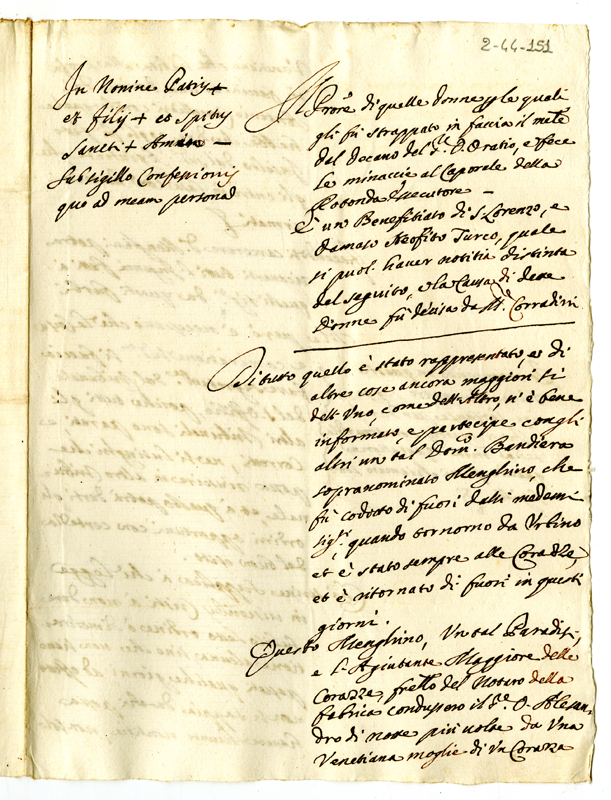 2-44-151
In Nomine Patris +
et Filij + et Spirtus
Sancti + Amen —
Sub sigillo Confessionis
quo ad meam personā
Il Pror.e di quelle donne p le quali
gli fù strappato in faccia il
dal Decano del S.r D. Oratio, e fece
le minaccie al Caporale della
Rotonda Essecutore —
È un Benefitiato di S. Lorenzo, e
Damaso Neofito Turco, quale
si puol' haver notitia distinta
del seguito, e la Causa di dette
Donne fù decisa da M.r Corradini
Di tutto quello è stato rappresentato, et di
altre cose ancora maggiori sì
dell'Uno, come dell'Altro, n'è bene
informato, e partecipe con gli
altri un tal Dom.co Bandiera
sopranominato Menghino, che
fù codotto di fuori dalli medemi
sig.ri, quando tornorno da Urbino
et è stato sempre alle Corazze,
et è ritornato di fuori in questi
giorni.
Questo Menghino, Un tal Paradisi,
e l'Agiutante Maggiore delle
Corazze, frēllo del Notaro della
fabrica condussero il S.r D. Alesan
dro di notte più volte da Una
Venetiana moglie di Un Corazza